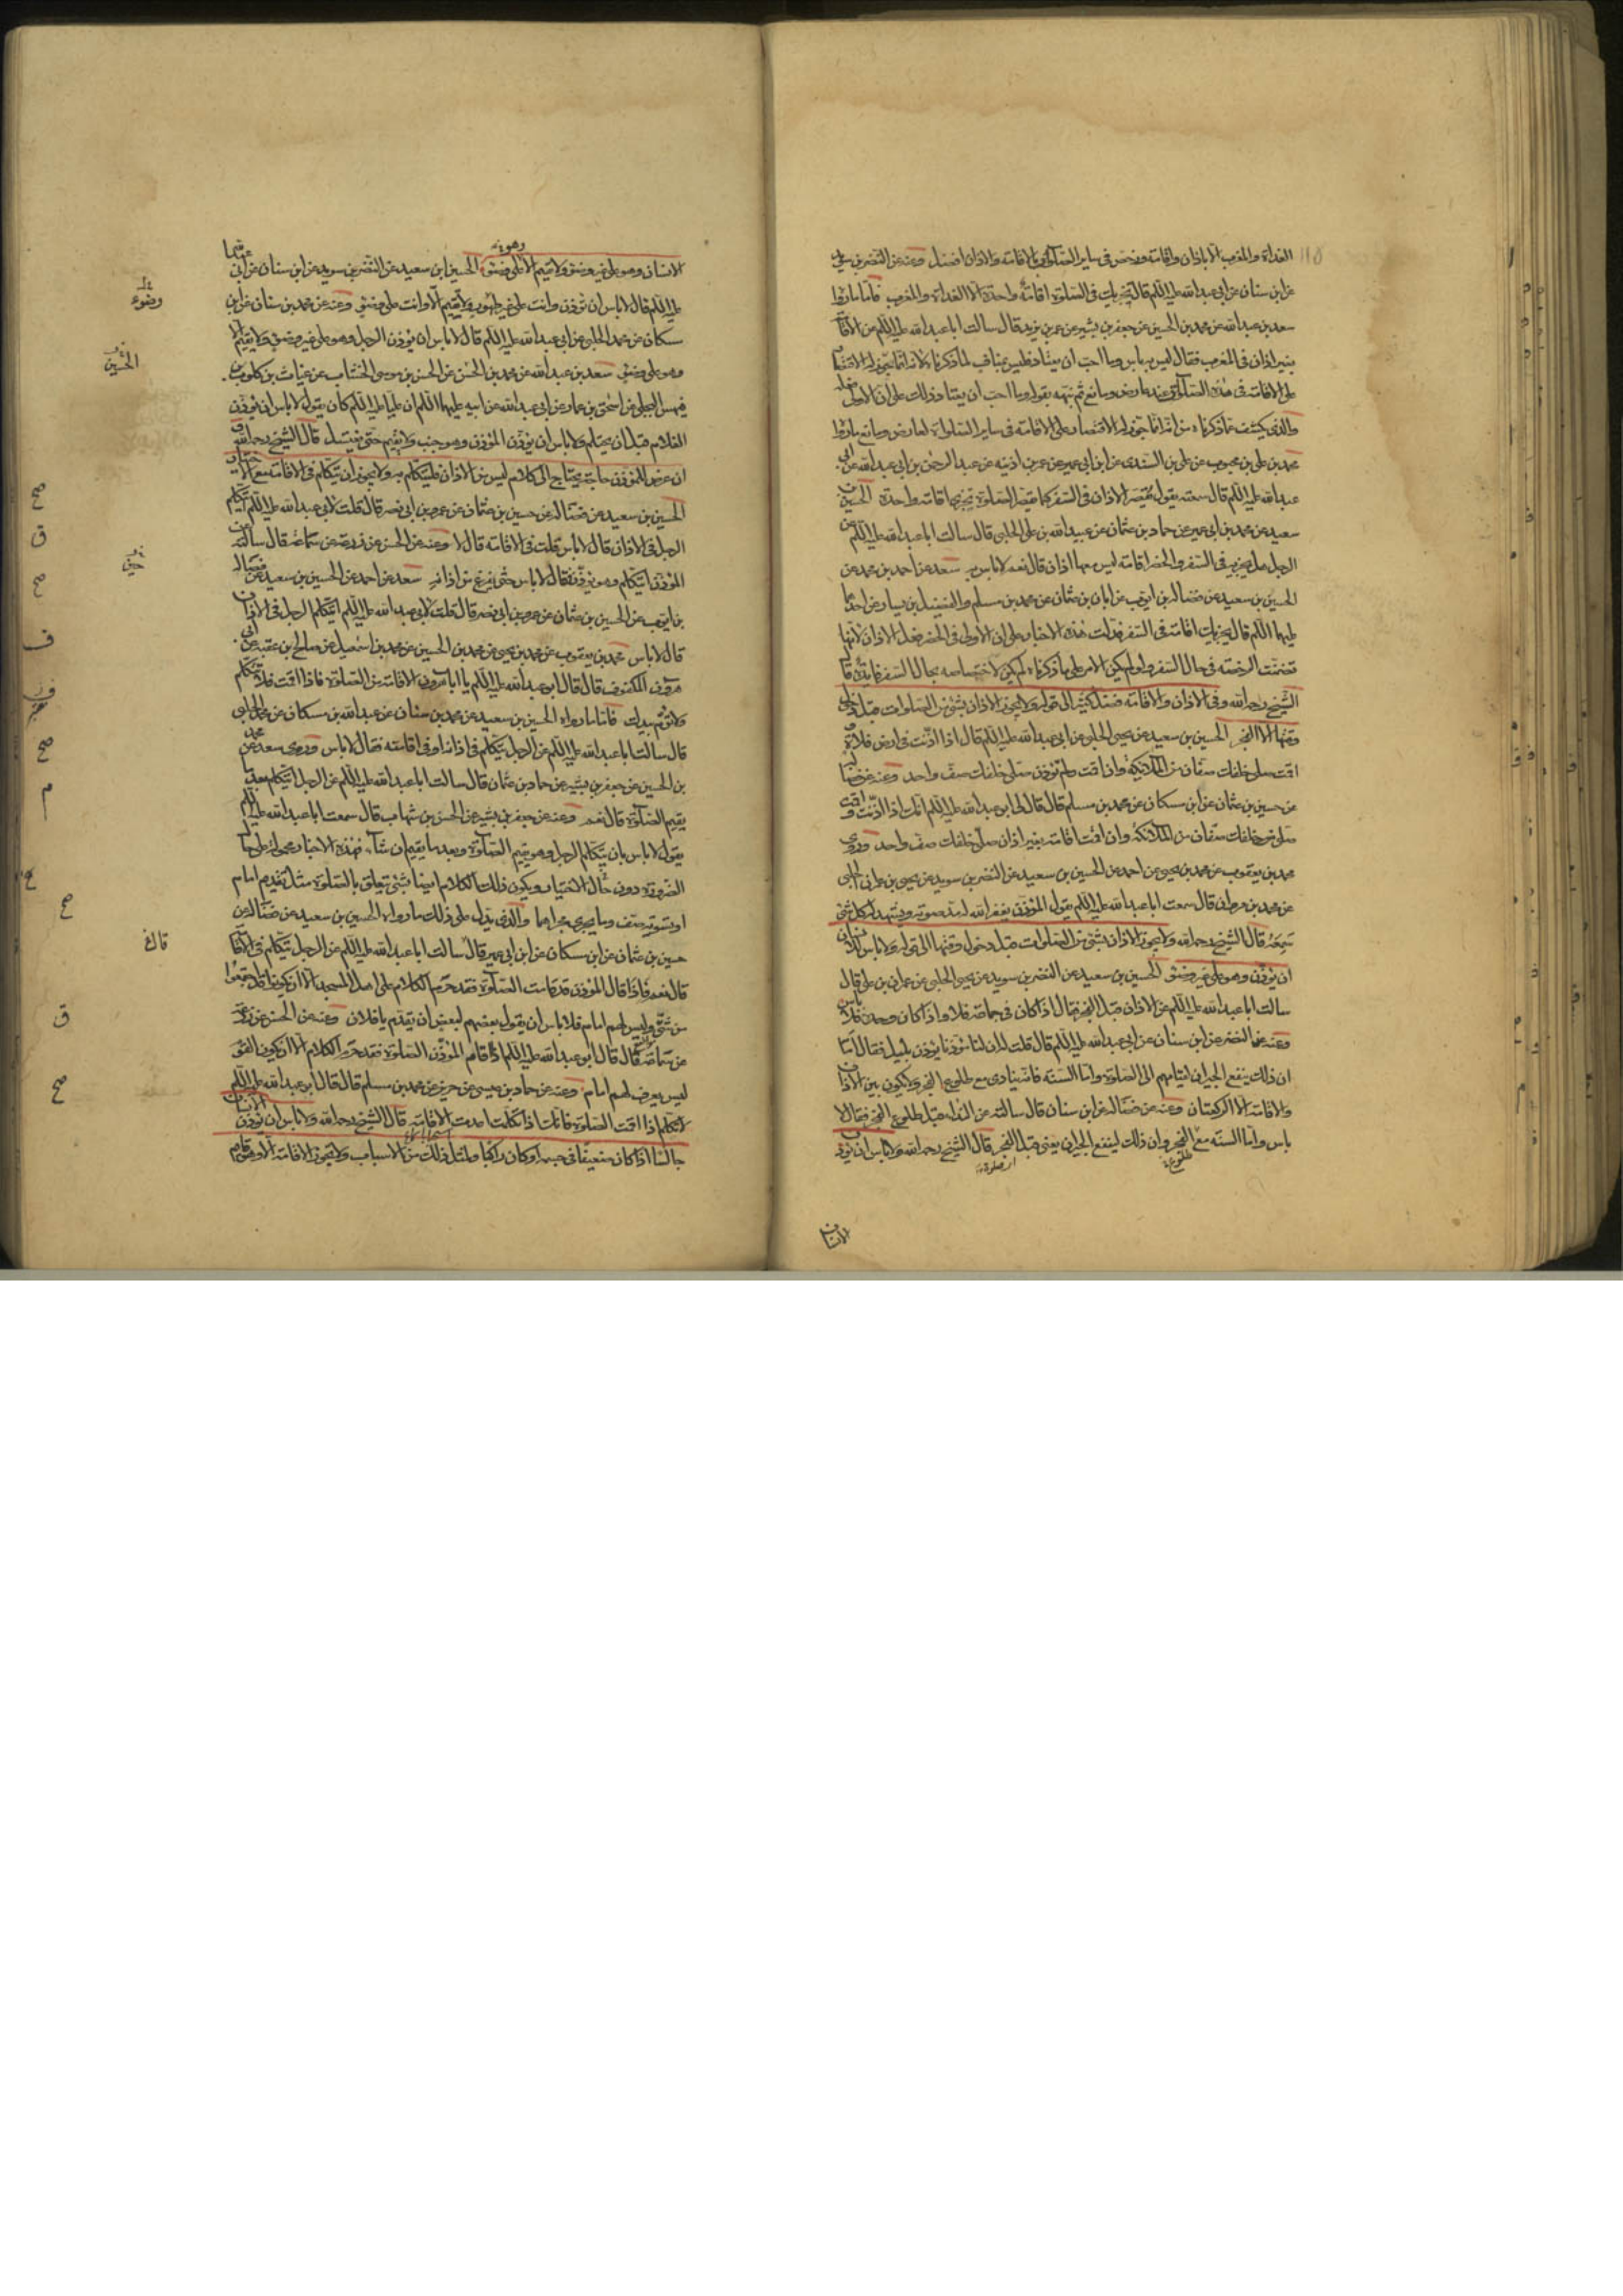 الغداة والمغرب الا باذان واقامة ورخص فى ساير الصلوات بالاقامة والاذان افضل وعنه عن النضر بن سويد
عن ابن سنان عن ابى عبدالله عليه السلم قال يجزيك فى الصلوة اقامة واحدة الا الغداة والمغرب فاما ما رواه
سعد بن عبدالله عن محمد بن الحسين عن جعفر بن بشير عن عمر بن يزيد قال سالت ابا عبدالله عليه السلم عن الاقامة
بغير اذان فى المغرب فقال ليس به باس وما احب ان يعتاد فليس بمناف لما ذكرناه لانه انما يجوز له الاقتصار
على الاقامة فى هذه الصلوات عند عارض ومانع ثم نبهه بقوله وما احب ان يعتاد وذلك على ان الاولى فعله
والذى يكشف عما ذكرناه من انه انما يجوز له الاقتصار على الاقامة فى ساير الصلوات لعارض ومانع ما رواه
محمد بن على بن محبوب عن على بن السندى عن ابن ابى عمير عن عمر بن اذينه عن عبدالرحمن بن ابى عبدالله عن ابى
عبدالله عليه السلم قال سمعته يقول يقصر الاذان فى السفر كما تقصر الصلوة تجزى اقامة واحدة الحسين بن
سعيد عن محمد بن ابى عمير عن حماد بن عثمان عن عبيدالله بن على الحلبى قال سالت ابا عبدالله عليه السلم عن
الرجل هل يجزيه فى السفر والحضر اقامة ليس معها اذان قال نعم لا باس به سعد عن احمد بن محمد عن
الحسين بن سعيد عن فضالة بن ايوب عن ابان بن عثمان عن محمد بن مسلم والفضيل بن يسار عن احدهما
عليهما السلم قال يجزيك اقامة فى السفر فدلت هذه الاخبار على ان الاولى فى الحضر فعل الاذان لانها
تضمنت الرخصة فى حال السفر ولو لم يكن الامر على ما ذكرناه لم يكن لاختصاصه بحال السفر فايدة قال
الشيخ رحمه الله وفى الاذان والاقامة فضل كثير الى قوله ولا يجوز الاذان بشئ من الصلوات قبل دخول
وقتها الا الفجر الحسين بن سعيد عن يحيى الحلبى عن ابى عبدالله عليه السلم قال اذا اذنت فى ارض فلاة و
اقمت صلى خلفك صفان من الملائكة وان اقمت ولم تؤذن صلى خلفك صف واحد وعنه عن فضالة
عن حسين بن عثمان عن ابن مسكان عن محمد بن مسلم قال قال لى ابو عبدالله عليه السلم انك اذا اذنت واقمت
صلى خلفك صفان من الملائكة وان اقمت اقامة بغير اذان صلى خلفك صف واحد وروى
محمد بن يعقوب عن محمد بن يحيى عن احمد عن الحسين بن سعيد عن النضر بن سويد عن يحيى بن عمران الحلبى
عن محمد بن مروان قال سمعت ابا عبدالله عليه السلم يقول المؤذن يغفر الله له مد صوته ويشهد له كل شئ
سمعه قال الشيخ رحمه الله ولا يجوز الاذان بشئ من الصلوات قبل دخول وقتها الى قوله ولا باس للانسان
ان يؤذن وهو على غير وضوء الحسين بن سعيد عن النضر بن سويد عن يحيى الحلبى عن عمران بن على قال
سالت ابا عبدالله عليه السلم عن الاذان قبل الفجر فقال اذا كان فى جماعة فلا واذا كان وحده فلا باس
وعنه عن النضر عن ابن سنان عن ابى عبدالله عليه السلم قال قلت له ان لنا مؤذنا يؤذن بليل فقال اما
ان ذلك ينفع الجيران لقيامهم الى الصلوة واما السنة فانه ينادى مع طلوع الفجر ولا يكون بين الاذان
والاقامة الا الركعتان وعنه عن فضالة عن ابن سنان قال سالته عن النداء قبل طلوع الفجر فقال لا
باس واما السنة مع الفجر وان ذلك لينفع الجيران يعنى قبل الفجر قال الشيخ رحمه الله ولا باس ان يؤذن
طلوع
الانسان
الانسان وهو على غير وضوء ولا يقيم الا على وضوء الحسين بن سعيد عن النضر بن سويد عن ابن سنان عن ابى عبدالله
عليه السلم قال لا باس ان تؤذن وانت على غير طهور ولا تقيم الا وانت على وضوء وعنه عن محمد بن سنان عن ابن
مسكان عن محمد الحلبى عن ابى عبدالله عليه السلم قال لا باس ان يؤذن الرجل وهو على غير وضوء ولا يقيم الا
وهو على وضوء سعد بن عبدالله عن محمد بن الحسن عن الحسن بن موسى الخشاب عن غياث بن كلوب بن
فيهس البجلى عن اسحق بن عمار عن ابى عبدالله عن ابيه عليهما السلم ان عليا عليه السلم كان يقول لا باس ان يؤذن
الغلام قبل ان يحتلم ولا باس ان يؤذن المؤذن وهو جنب ولا يقيم حتى يغتسل قال الشيخ رحمه الله
ان عرض للمؤذن حاجة يحتاج الى كلام ليس من الاذان فليتكلم به ولا يجوز ان يتكلم فى الاقامة مع الاختيار
الحسين بن سعيد عن فضالة عن حسين بن عثمان عن عمرو بن ابى نصر قال قلت لابى عبدالله عليه السلم ايتكلم
الرجل فى الاذان قال لا باس قلت فى الاقامة قال لا وعنه عن الحسن عن زرعة عن سماعة قال سالته عن
المؤذن ايتكلم وهو يؤذن فقال لا باس حتى يفرغ من اذانه سعد عن احمد عن الحسين بن سعيد عن فضالة
بن ايوب عن الحسين بن عثمان عن عمرو بن ابى نصر قال قلت لابى عبدالله عليه السلم ايتكلم الرجل فى الاذان
قال لا باس محمد بن يعقوب عن محمد بن يحيى عن محمد بن الحسين عن محمد بن اسمعيل عن صالح بن عقبة عن ابى
هرون المكفوف قال قال ابو عبدالله عليه السلم يا ابا هرون الاقامة من الصلوة فاذا اقمت فلا تتكلم
ولا تؤم بيدك فاما ما رواه الحسين بن سعيد عن محمد بن سنان عن عبدالله بن مسكان عن محمد الحلبى
قال سالت ابا عبدالله عليه السلم عن الرجل يتكلم فى اذانه او فى اقامته فقال لا باس وروى سعد عن محمد
بن الحسين عن جعفر بن بشير عن حماد بن عثمان قال سالت ابا عبدالله عليه السلم عن الرجل ايتكلم بعد ما
يقيم الصلوة قال نعم وعنه عن جعفر بن بشير عن الحسن بن شهاب قال سمعت ابا عبدالله عليه السلم
يقول لا باس بان يتكلم الرجل وهو يقيم الصلوة وبعد ما يقيم ان شاء فهذه الاخبار محمولة على حال
الضرورة دون حال الاختيار ويكون ذلك الكلام ايضا بشئ يتعلق بالصلوة مثل تقديم امام
او تسوية صف وما يجرى مجراهما والذى يدل على ذلك ما رواه الحسين بن سعيد عن فضالة عن
حسين بن عثمان عن ابن مسكان عن ابن ابى عمير قال سالت ابا عبدالله عليه السلم عن الرجل يتكلم فى الاقامة
قال نعم فاذا قال المؤذن قد قامت الصلوة فقد حرم الكلام على اهل المسجد الا ان يكونوا قد اجتمعوا
من شتى وليس لهم امام فلا باس ان يقول بعضهم لبعض ان تقدم يا فلان وعنه عن الحسن عن زرعة
عن سماعة قال قال ابو عبدالله عليه السلم اذا قام المؤذن الصلوة فقد حرم الكلام الا ان يكون القوم
ليس يعرف لهم امام وعنه عن حماد بن عيسى عن حريز عن محمد بن مسلم قال قال ابو عبدالله عليه السلم
لا تتكلم اذا اقمت الصلوة فانك اذا تكلمت اعدت الاقامة قال الشيخ رحمه الله ولا باس ان يؤذن الانسان
جالسا اذا كان ضعيفا فى جسمه او كان راكبا ولمثل ذلك من الاسباب ولا يجوز الاقامة الا وهو قائم
وضوء
الحسين
صح
ق
صح
صح
م
قال
ق
صح